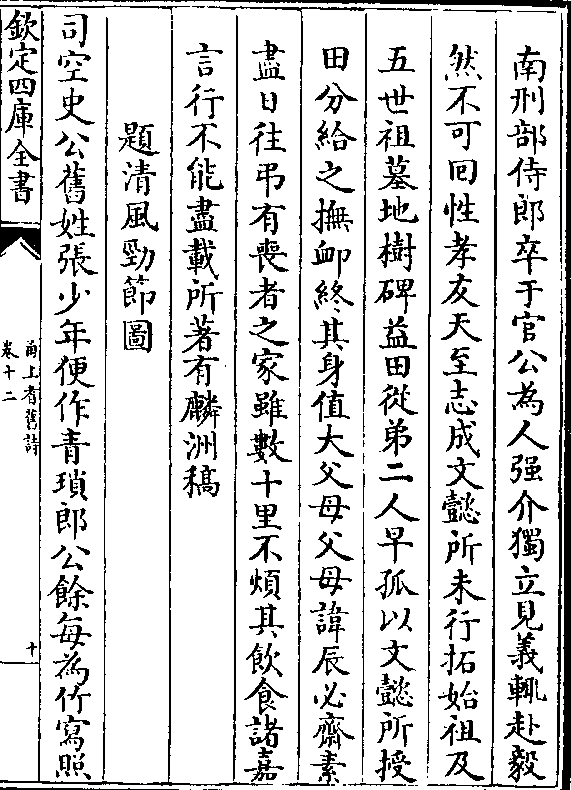 南刑部侍郎卒于官公為人强介獨立見義輒赴毅
然不可回性孝友天至志成文懿所未行拓始祖及
五世祖墓地樹碑益田從弟二人早孤以文懿所授
田分給之撫卹終其身值大父母父母諱辰必齋素
盡日往弔有喪者之家雖數十里不煩其飲食諸嘉
言行不能盡載所著有麟洲稿
題清風勁節圖
司空史公舊姓張少年便作青瑣郎公餘每為竹寫照
欽定四庫全書
甬上耆舊詩
卷十二
十